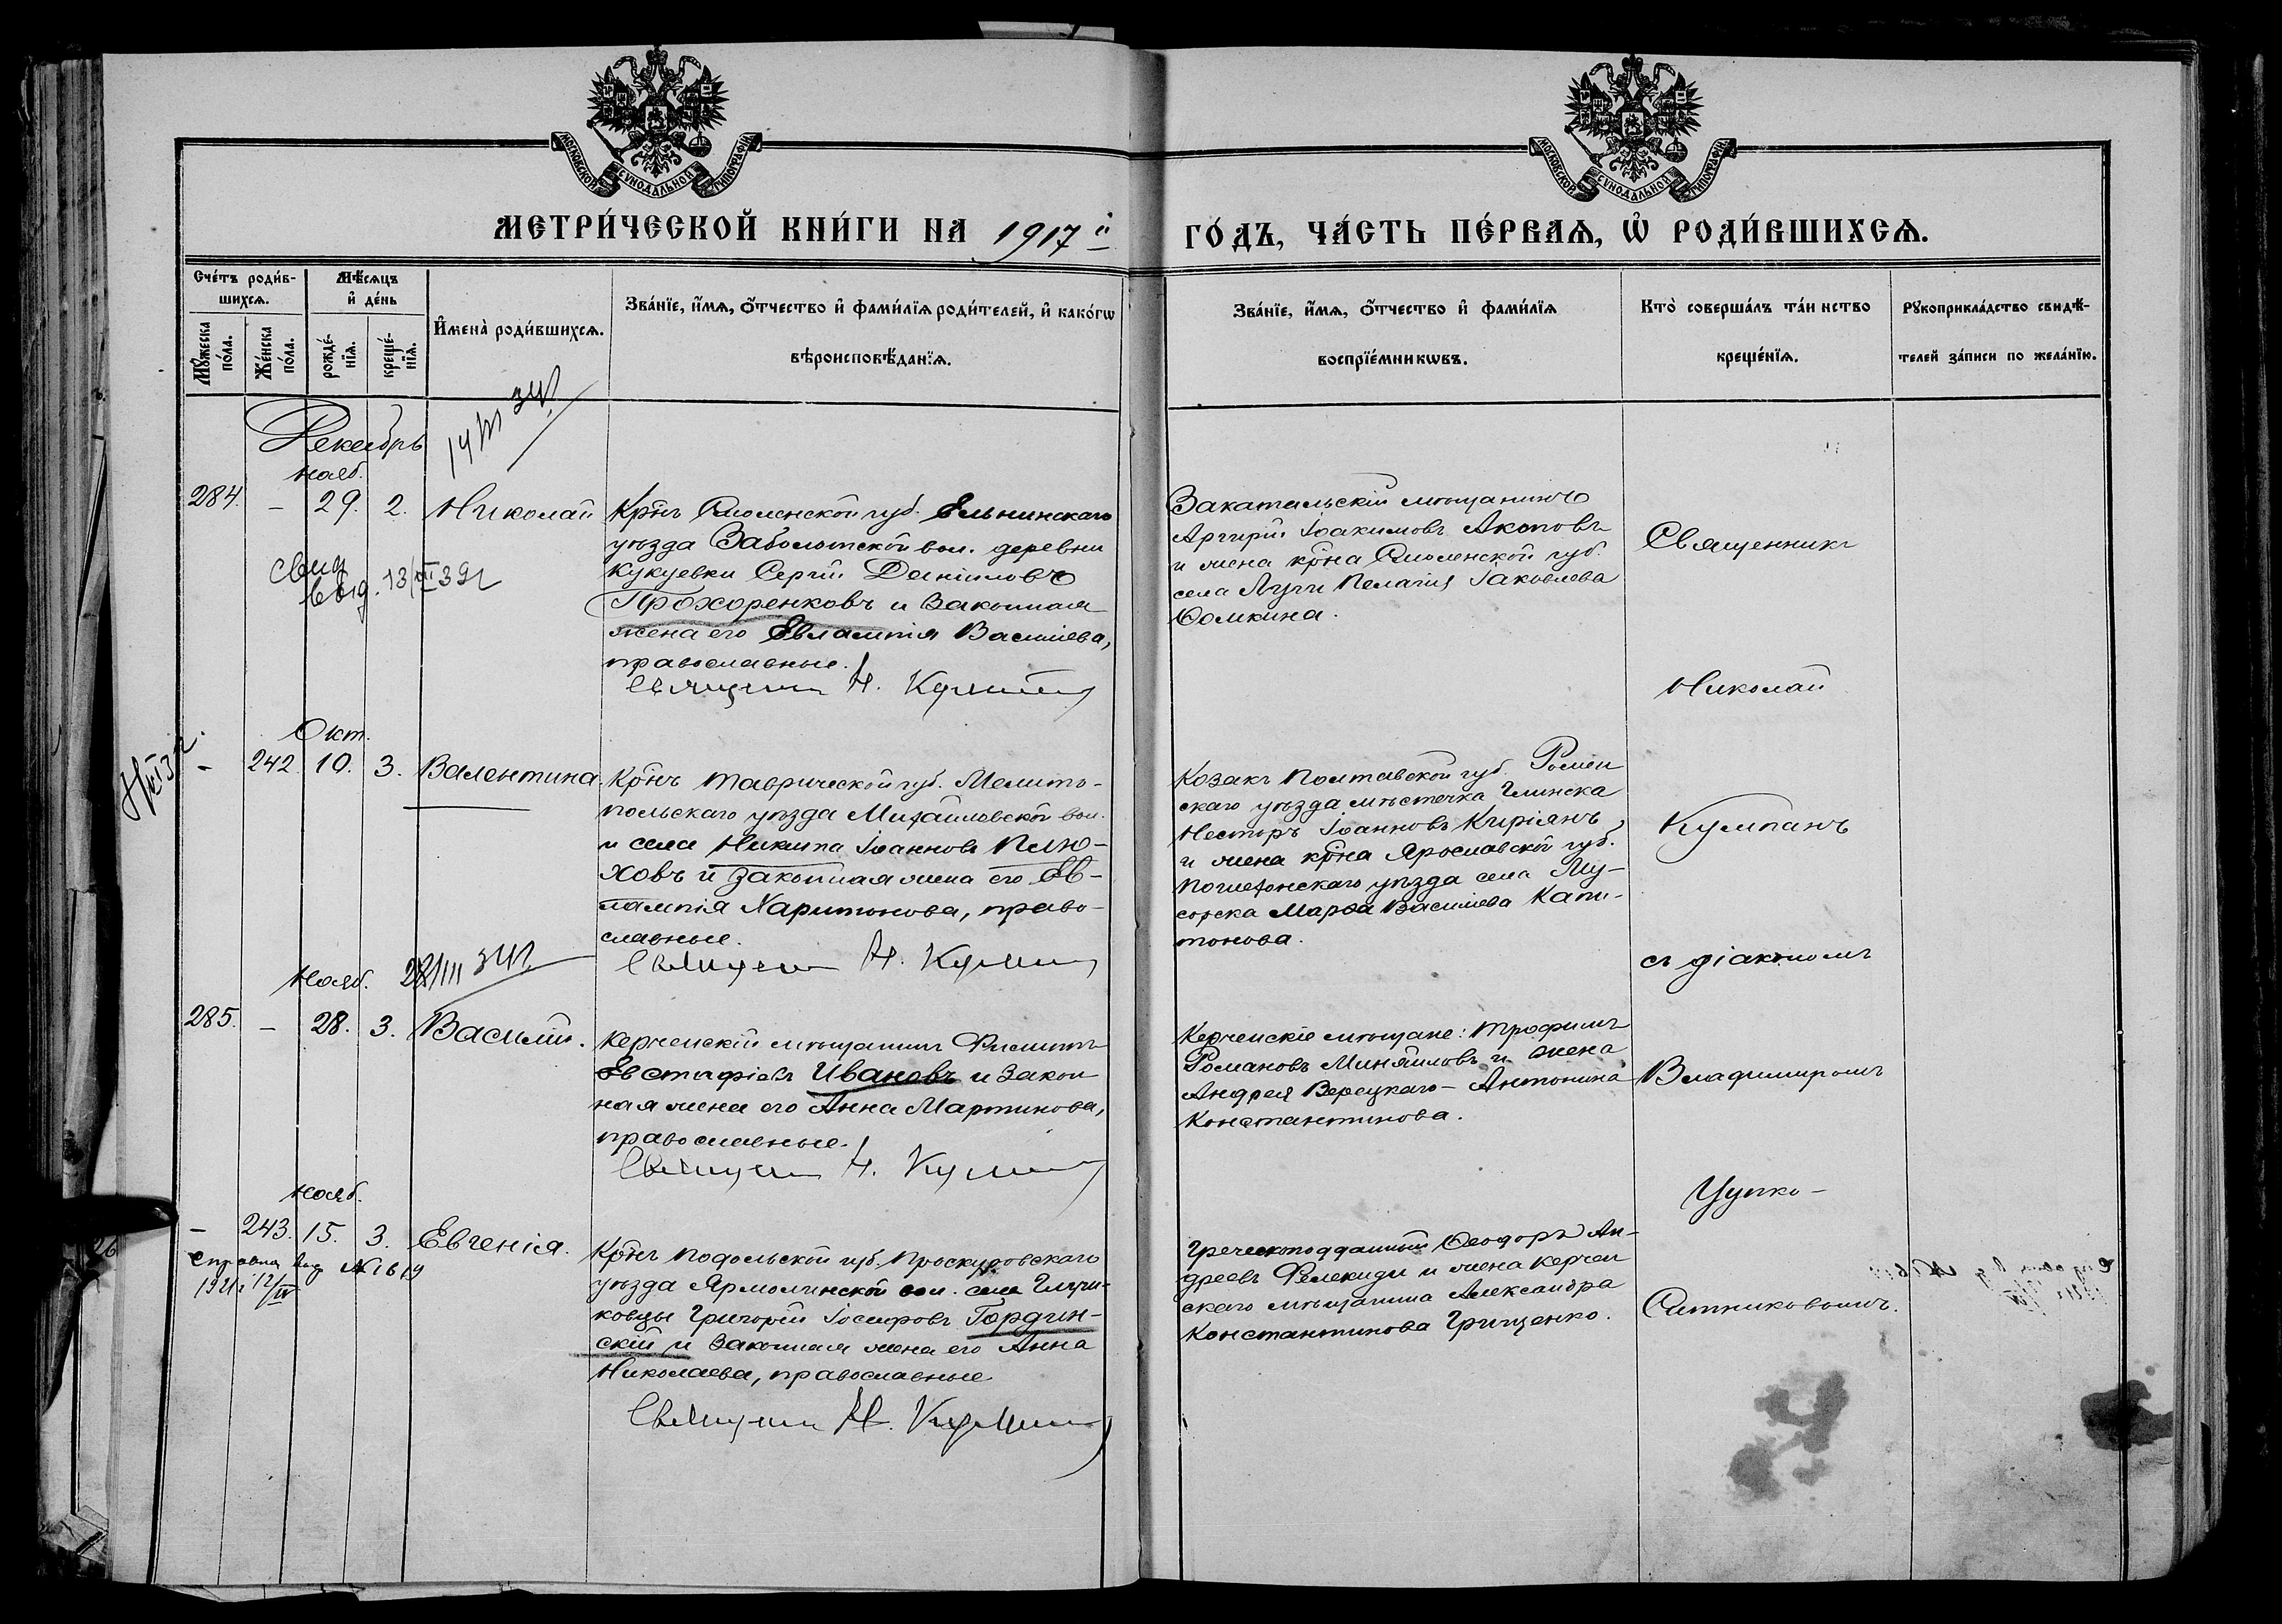 МОСКОВСКОЙ СУНОДАЛЬНОЙ ТИПОГРАФІИ
МОСКОВСКОЙ СУНОДАЛЬНОЙ ТИПОГРАФІИ
МЕТРИ́ЧЕСКОЙ КНИ́ГИ НА 1917 й
ГО́ДЪ, ЧА́СТЬ ПЕ́РВАѦ, Ѡ҆ РОДИ́ВШИХСѦ.
Сче́тъ роди́в-
шихсѧ.
Мѣ́сѧцъ
и҆ де́нь
Мꙋ́жеска
по́ла.
Же́нска
по́ла.
рожде́-
нїѧ.
креще́-
нїѧ.
И҆мена̀ роди́вшихсѧ.
Зва́нїе, и҆́мѧ, ѻ҆́тчество и҆ фами́лїѧ роди́телей, и҆ како́гѡ
вѣроисповѣ́данїѧ.
Зва́нїе, и҆́мѧ, ѻ҆́тчество и҆ фами́лїѧ
воспрїе́мникѡвъ.
Кто̀ соверша́лъ та́инство
креще́нїѧ.
Рꙋкоприкла́дство свидѣ́-
телей за́писи по жела́нїю.
Декабрь
14/III 34г.
нояб.
284. - 29. 2. Николай
Крнъ Смоленской губ. Ельнинскаго
уѣзда Заболотской вол. деревни
Кукуевки Сергій Даніиловъ
Прохоренковъ и законная
жена его Евлампія Василіева,
православные.
Священник Н. Кумпан
свид
выд. 13/VII 39г
Закатальскій мѣщанинъ
Аргирій Іоакимовъ Акоповъ
и жена крна Смоленской губ.
села Лучи Пелагія Іаковлева
Ѳомкина.
Священникъ
Николай
Окт.
- 242. 10. 3. Валентина.
Крнъ Таврической губ. Мелито-
польскаго уѣзда Михайловской вол.
и села Никита Іоанновъ Плю-
ховъ и законная жена его Ев-
лампія Харитонова, право-
славные.
Священник Н. Кумпан
Козакъ Полтавской губ. Ромен
скаго уѣзда мѣстечка Глинска
Несторъ Іоанновъ Киріянъ
и жена крна Ярославской губ.
Пошехонскаго уѣзда села Му-
сорска Марѳа Василіева Капи-
тонова.
Кумпанъ
съ діакономъ
Нояб.
28/III 34г.
285. - 28. 3. Василій.
Керченскій мѣщанинъ Филиппъ
Евстафіевъ Ивановъ и закон
ная жена его Анна Мартинова,
православные.
Священник Н. Кумпан
Керченскіе мѣщане: Трофимъ
Романовъ Миняйловъ и жена
Андрея Верецкаго - Антонина
Константинова.
Владимиромъ
Нояб.
- 243. 15. 3. Евгенія.
справка выд № 1619
1921 г 12/IV
Крнъ Подольской губ. Проскуровскаго
уѣзда Ярмолинской вол. села Глушковцы Григорій Іосифовъ Гордин-
скій и законная жена его Анна
Николаева, православные.
Священник Н. Кумпан
Греческоподданный Ѳеодоръ Ан-
дреевъ Фелекиди и жена Керчен
скаго мѣщанина Александра
Константинова Грищенко.
Цупко-
Ситниковымъ.